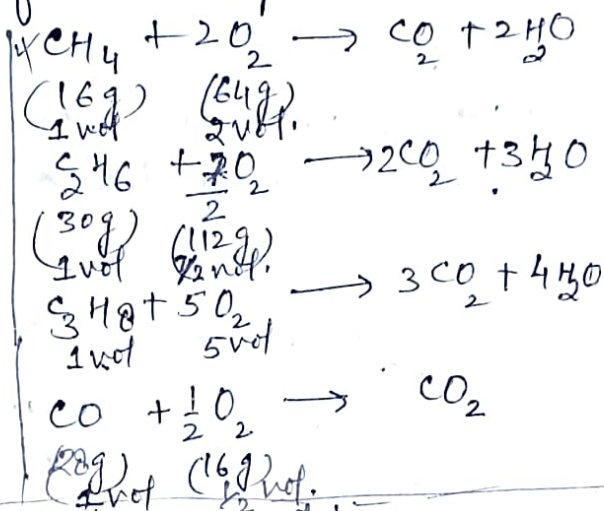 CH₄ + 2O₂ → CO₂ + 2H₂O
(16g) (64g)
1 vol 2 vol.
C₂H₆ + 7/2 O₂ → 2CO₂ + 3H₂O
(30g) (112g)
1 vol 7/2 vol.
C₃H₈ + 5O₂ → 3CO₂ + 4H₂O
1 vol 5 vol
CO + 1/2 O₂ → CO₂
(28g) (16g)
1 vol 1/2 vol.